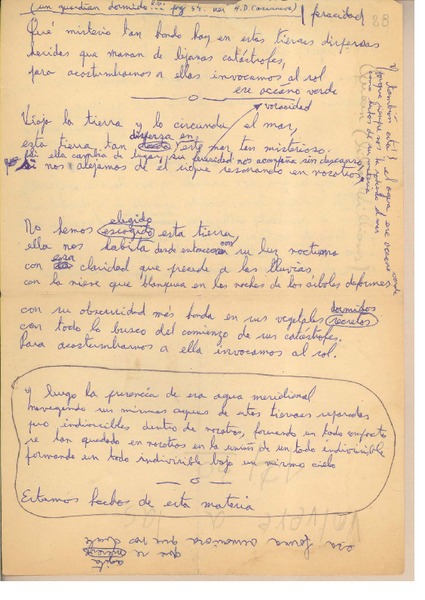 (un guardián dormido pag 54. ver H.D. Casanueva)
feracidad
88
Qué misterio tan hondo hay en estas tierras dispersas
heridas que manan de lejanas catástrofes,
para acostumbrarnos a ellas invocamos al sol
ese océano verde
voracidad
Viajo la tierra y la circunda el mar,
dispersa en
esta tierra, tan este mar tan misterioso.
ella cambia de lugar, su feracidad nos acompaña sin descanso
si nos alejamos de él sigue resonando en nosotros
elegido
No hemos escogido esta tierra,
ella nos habita desde entonces con su luz nocturna
con esa claridad que precede a las lluvias
con la nieve que blanquea en las noches de los árboles deformes
con su obscuridad más honda en sus vegetales dormidos
secretos
con todo lo brusco del comienzo de sus catástrofes.
Para acostumbrarnos a ella invocamos al sol.
y luego la presencia de esa agua meridional
navegando sus mismas aguas de estas tierras separadas
pero indivisibles dentro de nosotros, formando un todo compacto
se han quedado en nosotros en la unión de un todo indivisible
formando un todo indivisible bajo un mismo cielo
Estamos hechos de esta materia
esa forma armoniosa que nos duele
que se
agita
y también está el agua ese océano verde
Volveré a las